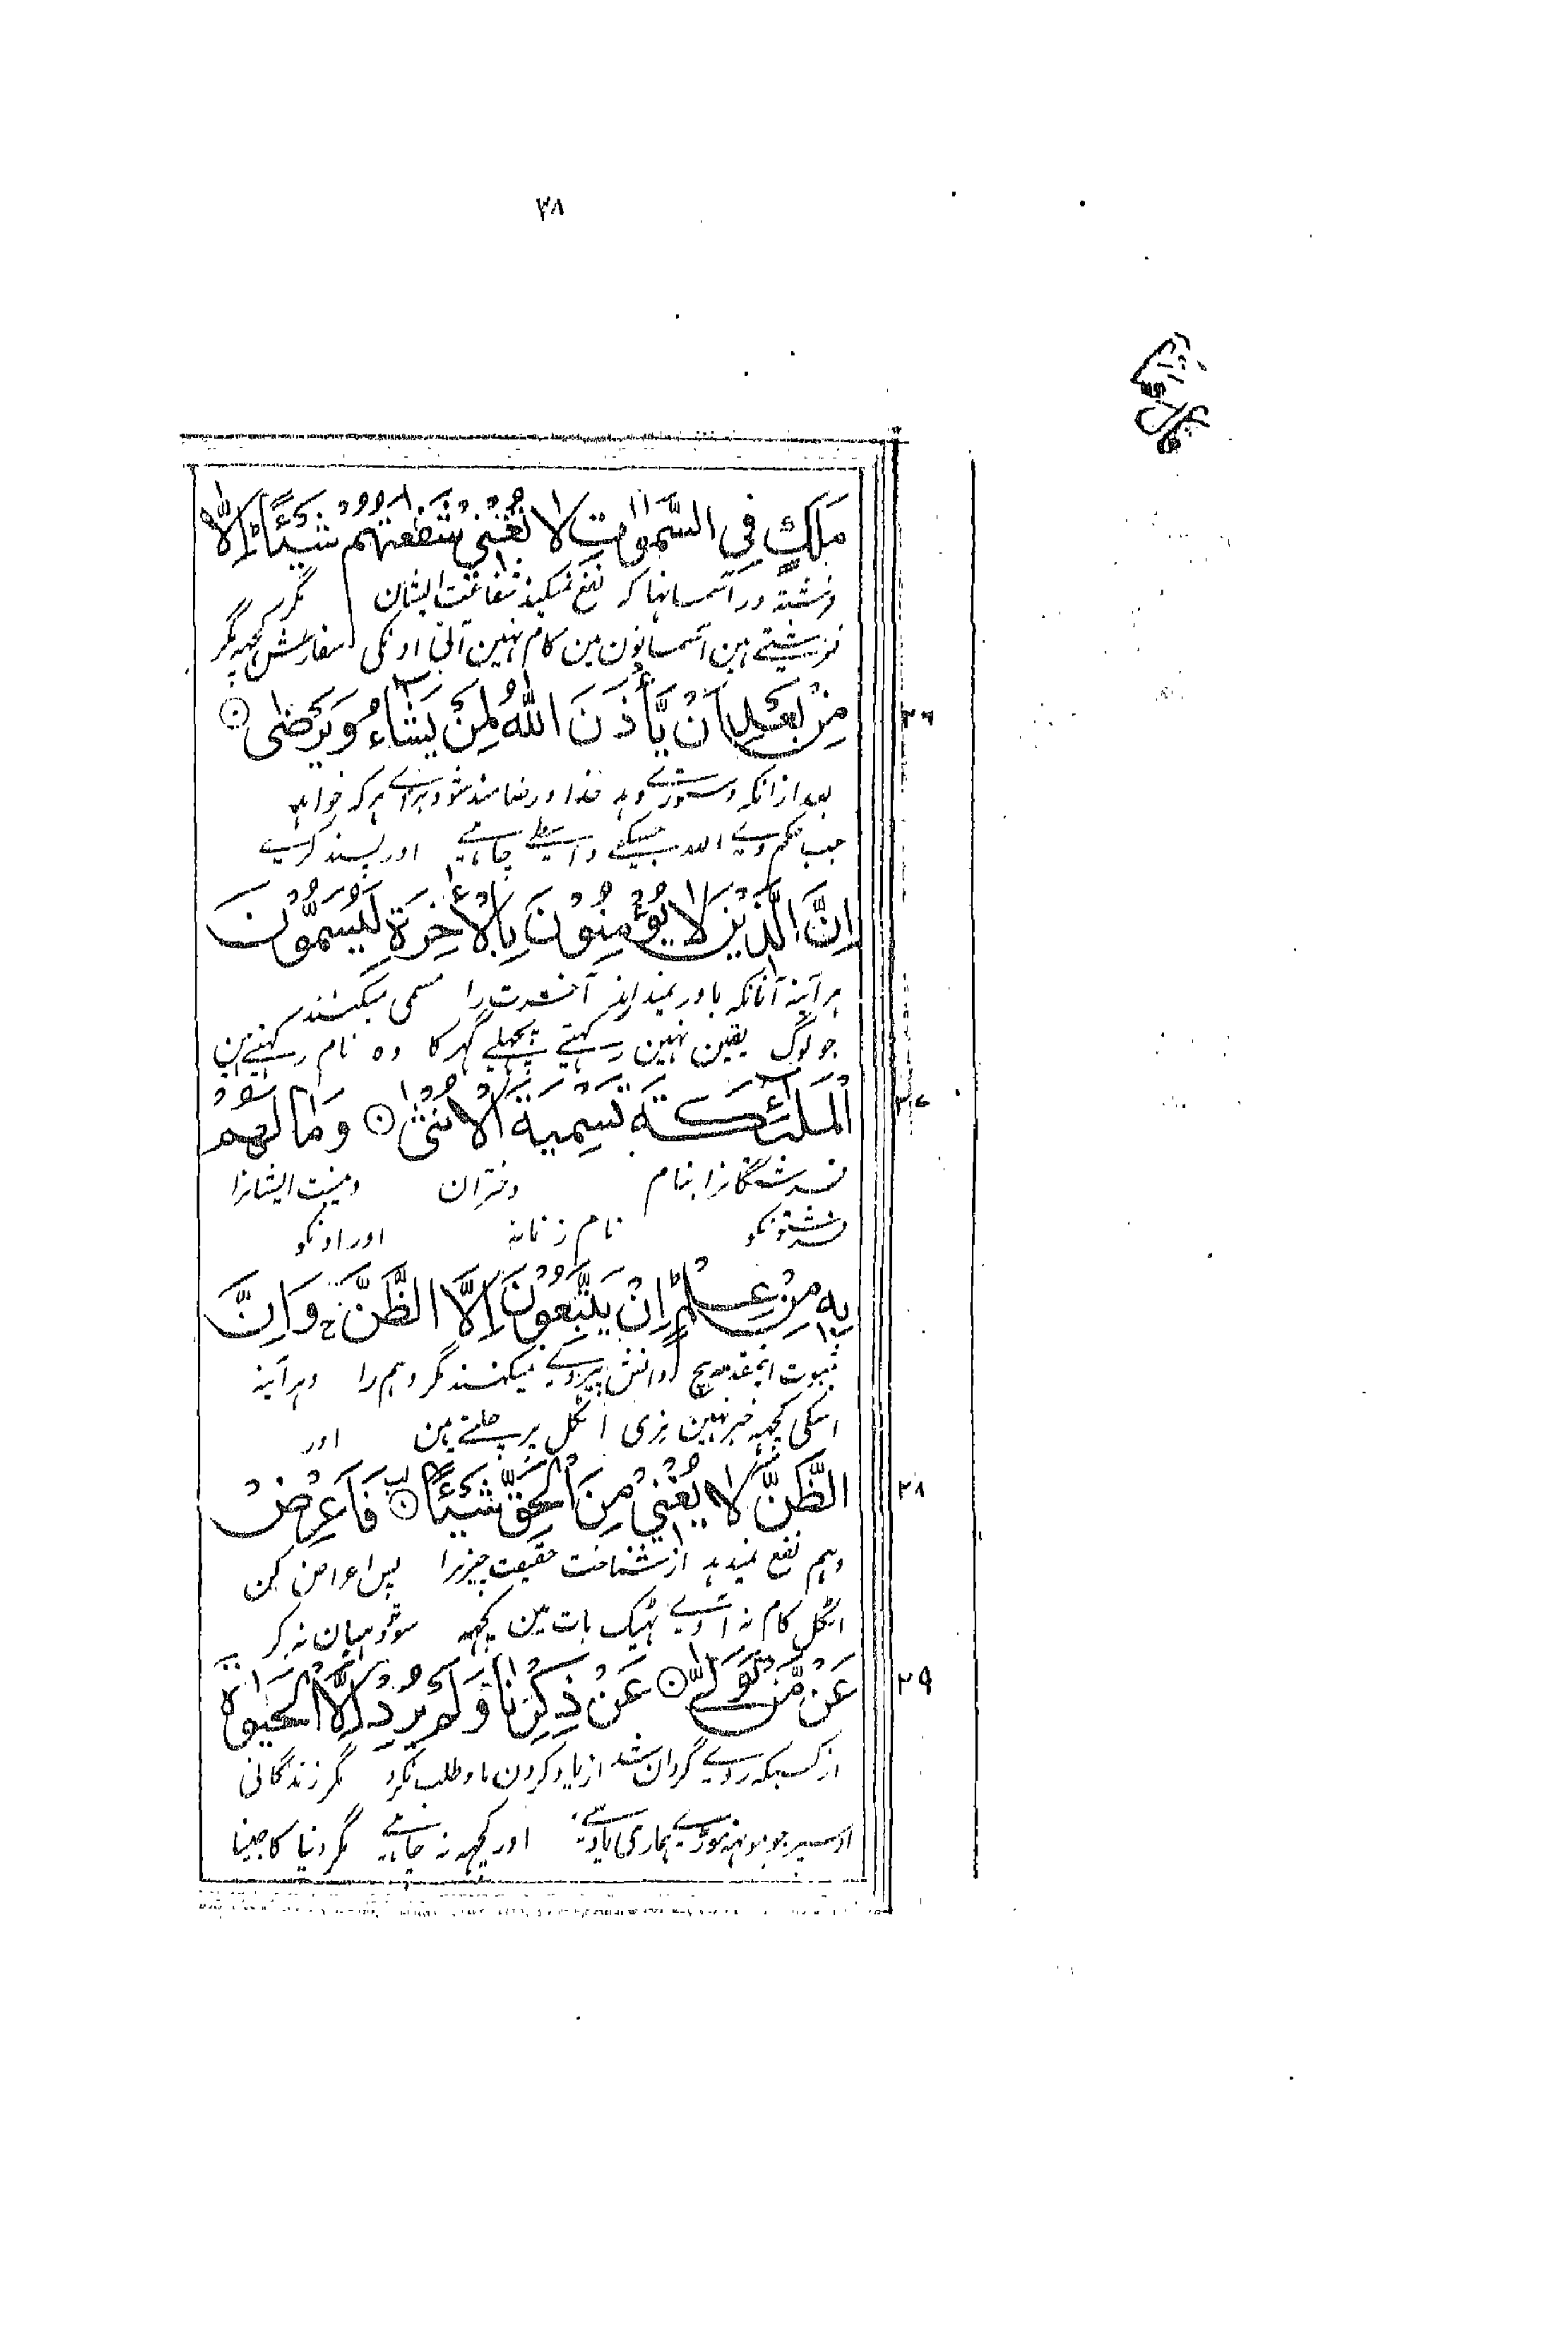 ٣٨
مَلَكٍ فِي السَّمٰوٰتِ لَا تُغْنِيْ شَفَاعَتُهُمْ شَيْـًٔا اِلَّا
فرشته در آسمانها که نفع نمیکند شفاعت ایشان مگر
فرشتے ہین آسمانون مین کام نہین آتی اونکی سفارش کچہہ مگر
مِنْۢ بَعْدِ اَنْ يَّاْذَنَ اللّٰهُ لِمَنْ يَّشَآءُ وَيَرْضٰى ۝
٢٦
بعد از انکه دستورے دہد خدا و رضامند شود براے ہر که خواہد
جب حکم دیے اللہ جسکے واسطے چاہیے اور پسند کریے
اِنَّ الَّذِيْنَ لَا يُؤْمِنُوْنَ بِالْاٰخِرَةِ لَيُسَمُّوْنَ
ہر آینه آنانکه باور نمیدارند آخرت را مسمی میکنند
جو لوگ یقین نہین رکہتے پچہلے گہر کا وہ نام رکہتے ہین
الْمَلٰٓئِكَةَ تَسْمِيَةَ الْاُنْثٰى ۝ وَمَا لَهُمْ
٢٧
فرشتگانرا بنام دختران ونیست ایشانرا
فرشتونکو نام زنانہ اور اونکو
بِهٖ مِنْ عِلْمٍ ؕ اِنْ يَّتَّبِعُوْنَ اِلَّا الظَّنَّ ۚ وَاِنَّ
ہیچ دانش پیروے نمیکنند مگر وہم را وہر آینه
اسکی کچہہ خبر نہین نری اٹکل پر چلتے ہین اور
الظَّنَّ لَا يُغْنِيْ مِنَ الْحَقِّ شَيْـًٔا ۝ فَاَعْرِضْ
٢٨
وہم نفع نمیدہد از شناخت حقیقت چیزیرا پس اعراض کن
اٹکل کام نہ آویے ٹہیک بات مین کچہہ سو تو دہیان نہ کر
عَنْ مَّنْ تَوَلّٰى ۝ عَنْ ذِكْرِنَا وَلَمْ يُرِدْ اِلَّا الْحَيٰوةَ
٢٩
از کسیکه رویے گردان شد از یاد کردن ما و طلب نکرد مگر زندگانی
اوسپر جو مونہہ موڑیے ہماری یاد سے اور کچہہ نہ چاہیے مگر دنیا کا جینا